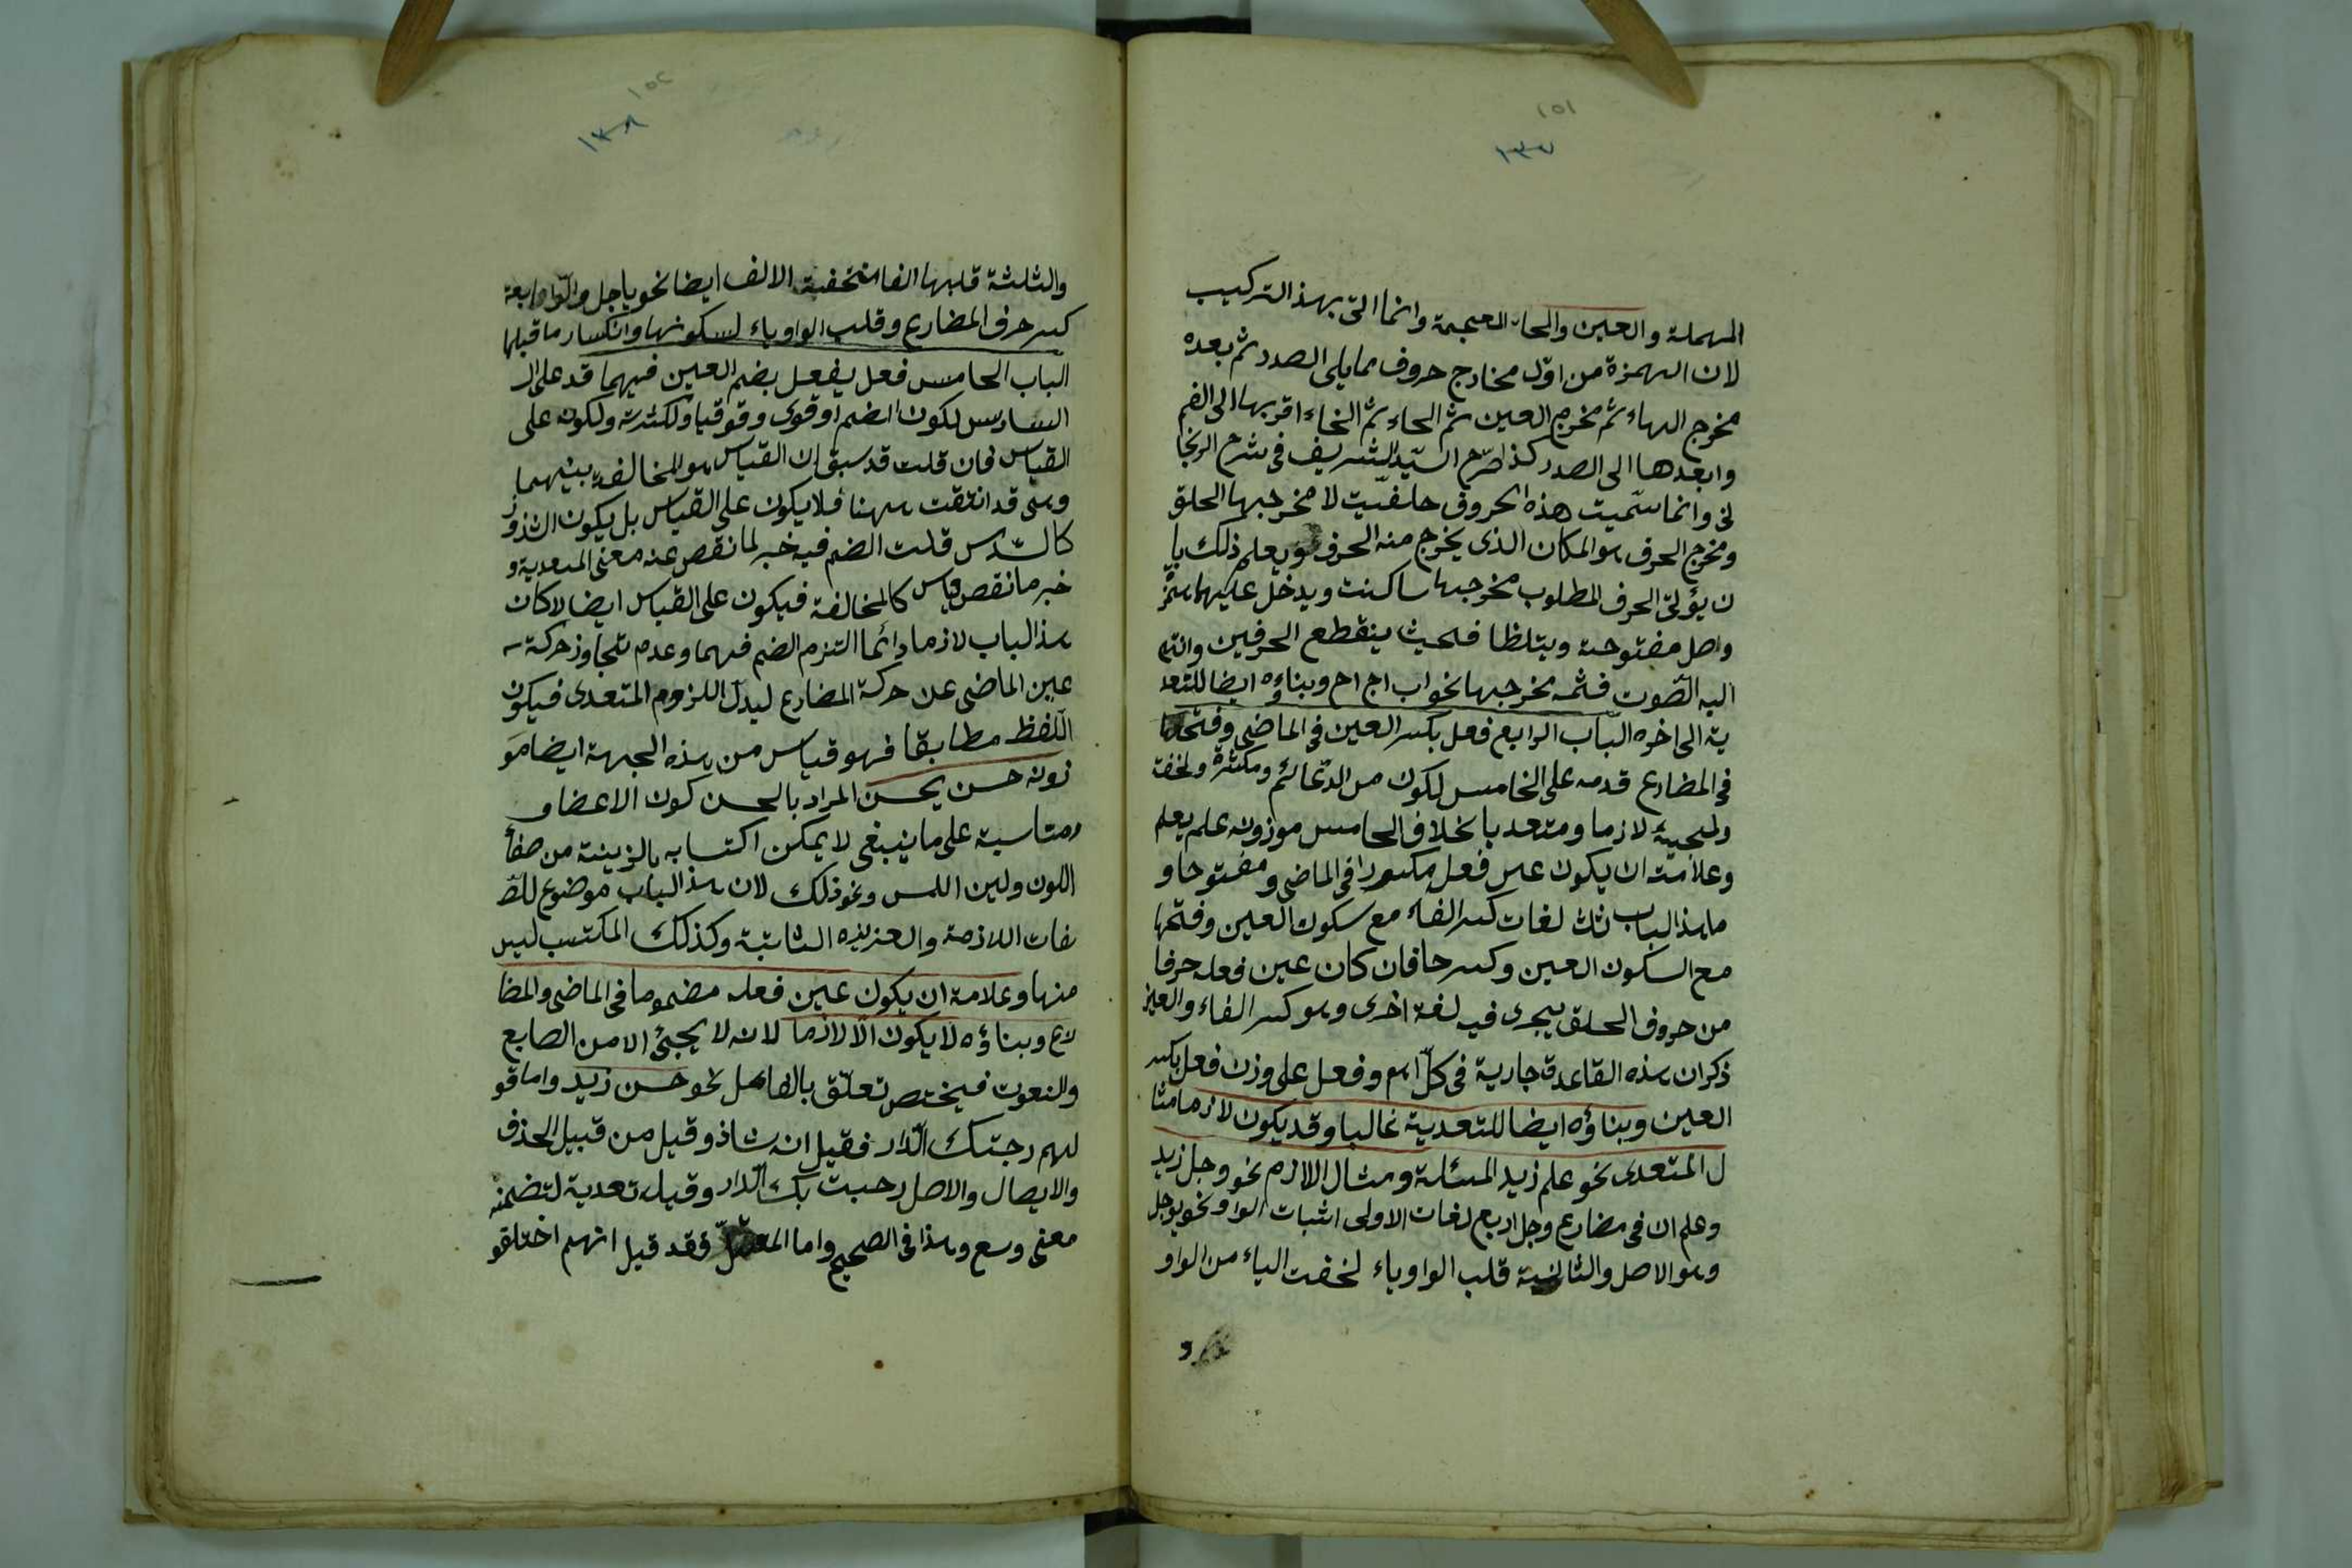 ١٥١
١٣٧
المهملة والعين والحاء المعجمة وانما اتى بهذ التركيب
لان الهمزة من اوّل مخارج حروف مما يلى الصدر ثم بعده
مخرج الهاء ثم مخرج العين ثم الحاء ثم الخاء اقربها الى الفم
وابعدها الى الصدر كذا صرّح السيّد الشريف فى شرح الزنجا
نى وانما سمّيت هذه الحروف حلقيّت لا مخرجها الحلق
ومخرج الحرف هو المكان الذى يخرج منه الحرف ويعلم ذلك با
ن يؤتى الحرف المطلوب مخرجها ساكنت ويدخل عليها همز
واصل مفتوحة ويتلظا فحيث ينقطع الحرفين وانتهى
اليه الصّوت فثمه مخرجها نحو اب اج اح وبناؤه ايضا للتعد
ية الى اخوه البّاب الرابع فعل بكسر العين فى الماضى وفتحها
فى المضارع قدمه على الخامس لكون من الدّعائم ومكثرة ولخفت
ولمجيئه لازما ومتعديا بخلاف الخامس موزونه علم يعلم
وعلامته ان يكون عين فعله مكسورا فى الماضى ومفتوحا و
ما هذا الباب ثلث لغات كسر الفاء مع سكون العين وفتحها
مع السكون العين وكسرها فان كان عين فعله حرفا
من حروف الحلق يجرى فيه لغة اخرى وهو كسر الفاء والعين
ذكر ان هذه القاعدة جارية فى كلّ اسم وفعل على وزن فعل بكسر
العين وبناؤه ايضا للتعدية غالبا وقد يكون لازما مثا
ل المتعدى نحو علم زيد المسئلة ومثال اللازم نحو وجل زيد
وعلم ان فى مضارع وجل اربع لغات الاولى اثبات الواو نحو يوجل
وهو الاصل والثانية قلب الواو ياء لخفت الياء من الواو
و
١٥٢
١٣٨
والثلثة قلبها الفا لخفية الالف ايضا نحو ياجل والرّابعة
كسر حرف المضارع وقلب الواو ياء لسكونها وانكسار ما قبلها
الباب الخامس فعل يفعل بضم العين فيهما قد على ال
السادس لكون الضم اوقوى وقوقيا ولكثرت ولكون على
القياس فان قلت قد سبق ان القياس هو المخالفة بينهما
وهى قد انتفت ههنا فلا يكون على القياس بل يكون الشذوذ
كالسّدس قلت الضم فيه خبر لما نقص عنه معنى المتعدية و
خبر ما نقص قياس كالمخالفة فيكون على القياس ايضا لا كان
هذ الباب لازما دائما التزم الضم فيهما وعدم تتجاوز حركة
عين الماضى عن حركة المضارع ليدلّ اللزوم المتعدى فيكون
اللّفظ مطابقا فهو قياس من هذه الجهة ايضا مو
زونه حسن يحسن المراد بالحسن كون الاعضاء
ومتاسبة على ما ينبغى لا يمكن اكتسابه بالزينة من صفا
اللون ولين اللمس ونحو ذلك لان هذ الباب موضوع للصّ
فات اللازمة والعزيزه الثابتة وكذلك المكتسب ليس
منها وعلامة ان يكون عين فعله مضموما فى الماضى والمضا
رع وبناؤه لا يكون الّا لازما لانه لا يجيئ الا من الصابع
والنعوت فيختص تعلّق بالفاعل نحو حسن زيد واما قو
لهم رحبتك الّدار فقيل انه شاذ وقيل من قبيل الحذف
والايصال والاصل رحبت بك الّدار وقيل تعدية لتضمنه
معنى وسع وهذا فى الصحيح واما المعتلّ فقد قيل انهم اختلقو